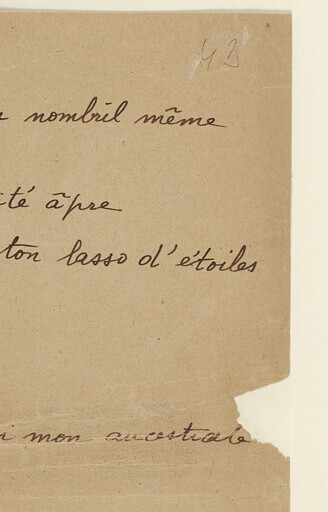 43
nombril même
ité âpre
ton lasso d'étoiles
mon ancestrale